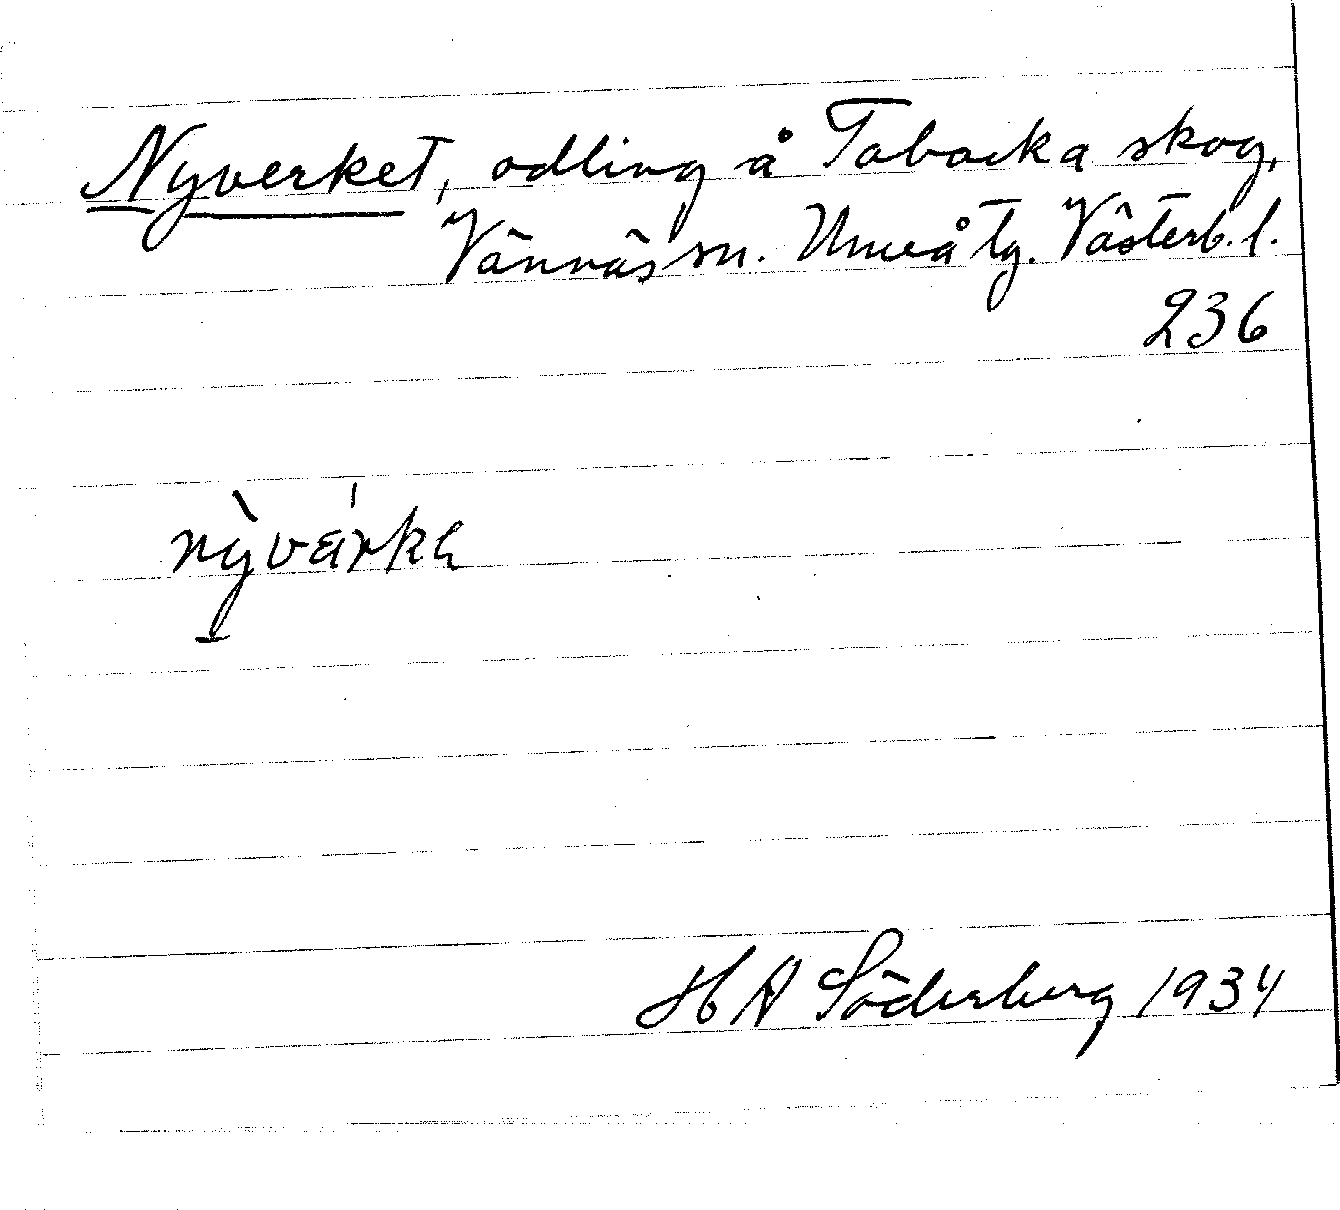 Nyverket, odling å Tobacka skog,
Vännäs sn. Umeå tg. Västerb. l.
236
nỳvä́rkə
H A Söderberg 1934